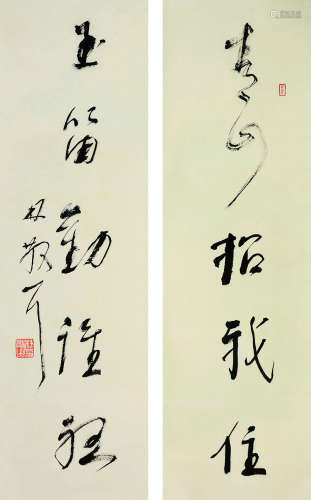 青山招我住
玉笛勸誰狂
林散耳